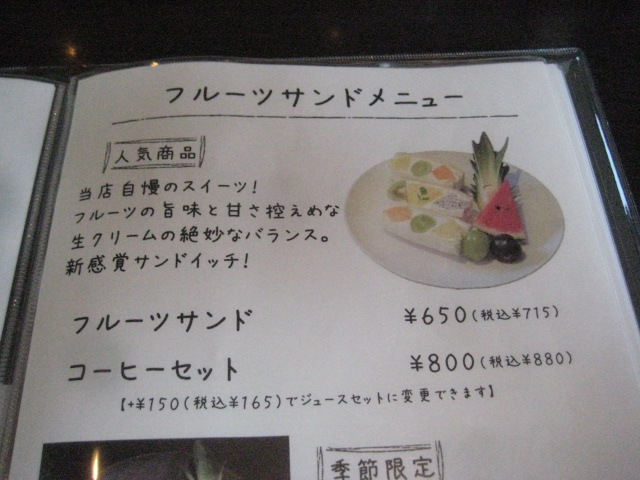 フルーツサンドメニュー
人気商品
当店自慢のスイーツ!
フルーツの旨味と甘さ控えめな
生クリームの絶妙なバランス。
新感覚サンドイッチ!
フルーツサンド ¥650(税込¥715)
コーヒーセット ¥800(税込¥880)
【+¥150(税込¥165)でジュースセットに変更できます】
季節限定